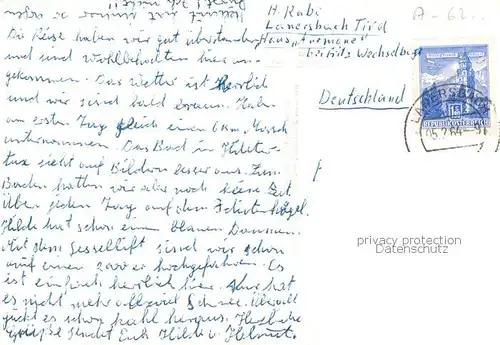 Die Reise haben wir gut überstanden
und sind wohlbehalten hier an-
gekommen. Das Wetter ist herrlich
und wir sind bald braun. Haben
am ersten Tag gleich einen 6 km Marsch
unternommen. Das Bad in Hinter-
tux sieht auf Bildern besser aus. Zum
Baden hatten wir aber noch keine Zeit
Über jeden Tag auf dem
Hilde hat schon einen blauen Daumen.
Mit dem Sessellift sind wir schon
auf einen 2000er hochgefahren. Es
ist einfach herrlich hier. Nur hat
es nicht mehr allzuviel Schnee. Überall
guckt es schon kahl heraus. Herzliche
Grüße sendet Euch Hilde u. Helmut.
H. Rabi
Lanersbach Tirol
Haus
Deutschland
A-62..
REPUBLIK ÖSTERREICH
LANERSBACH
privacy protection
Datenschutz